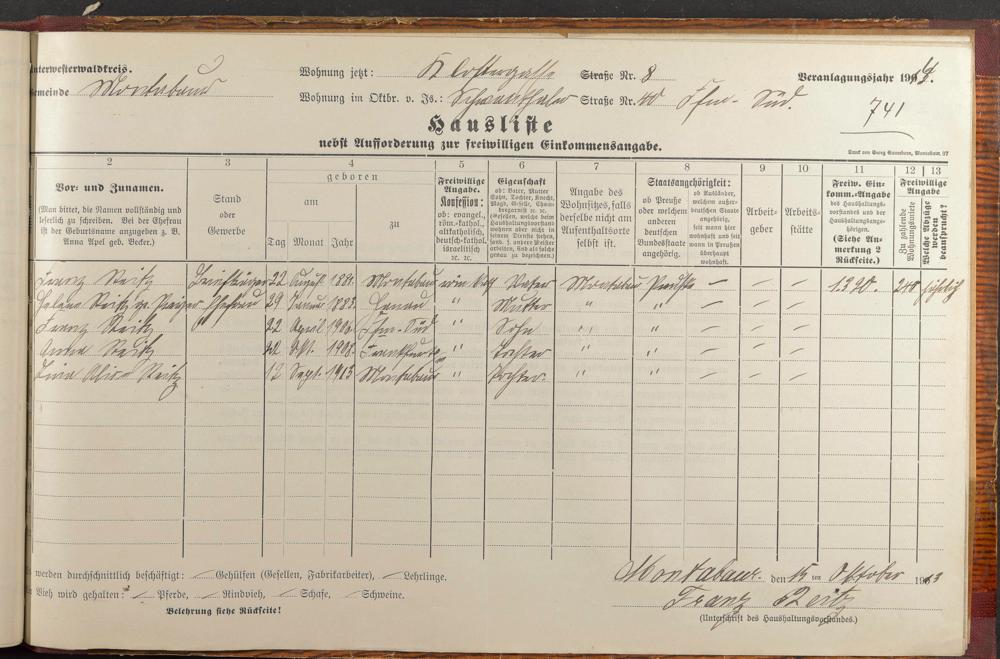 Unterwesterwaldkreis.
Gemeinde Montabaur
Wohnung jetzt: Klostergasse Straße Nr. 8
Wohnung im Oktbr. v. Js.: Straße Nr. 40 Ffm-Süd.
Veranlagungsjahr 191
741
Hausliste
nebst Aufforderung zur freiwilligen Einkommensangabe.
2
3
4
5
6
7
8
9
10
11
12
13
Vor- und Zunamen.
(Man bittet, die Namen vollständig und
leserlich zu schreiben. Bei der Ehefrau
ist der Geburtsname anzugeben z. B.
Anna Apel geb. Becker.)
Stand
oder
Gewerbe
geboren
am
zu
Tag Monat Jahr
Freiwillige
Angabe.
Konfession:
ob: evangel.,
röm.-kathol.,
altkatholisch,
deutsch-kathol.
israelitisch
ꝛc. ꝛc.
Eigenschaft
ob: Vater, Mutter
Sohn, Tochter, Knecht,
Magd, Geselle,
Angabe des
Wohnsitzes, falls
derselbe nicht am
Aufenthaltsorte
selbst ist.
Staatsangehörigkeit:
ob Preuße
oder welchem
anderen
deutschen
Bundesstaate
angehörig.
ob Ausländer,
welchem außer-
deutschen Staate
angehörig,
seit wann hier und
seit wann in Preußen
überhaupt
wohnhaft.
Arbeit-
geber
Arbeits-
stätte
Freiw. Ein-
komm.-Angabe
des Haushaltungs-
vorstandes und der
Haushaltungsange-
hörigen.
(Siehe An-
merkung 2
Rückseite.)
Freiwillige
Angabe
Zu zahlende
Wohnungsmiete
Welche Abzüge
werden
beansprucht?
Franz Reitz 22 August 188 Montabaur Vater Montabaur Preuße – – – 1390.– 240 jährlich
Reitz Ehefrau 29 Januar 1883. Hanau " Mutter " " – – –
Franz Reitz 22 April 190 Ffm-Süd " Sohn " " – – –
Anna Reitz Okt. 1908. Frankfurt " Tochter " " – – –
Reitz 12 Sept. 1913 Montabaur " Tochter " " – – –
werden durchschnittlich beschäftigt: – Gehülfen (Gesellen, Fabrikarbeiter), – Lehrlinge.
Vieh wird gehalten: – Pferde, – Rindvieh, – Schafe, – Schweine.
Belehrung siehe Rückseite!
Montabaur. den 15 ten Oktober 1913
Franz Reitz
(Unterschrift des Haushaltungsvorstandes.)